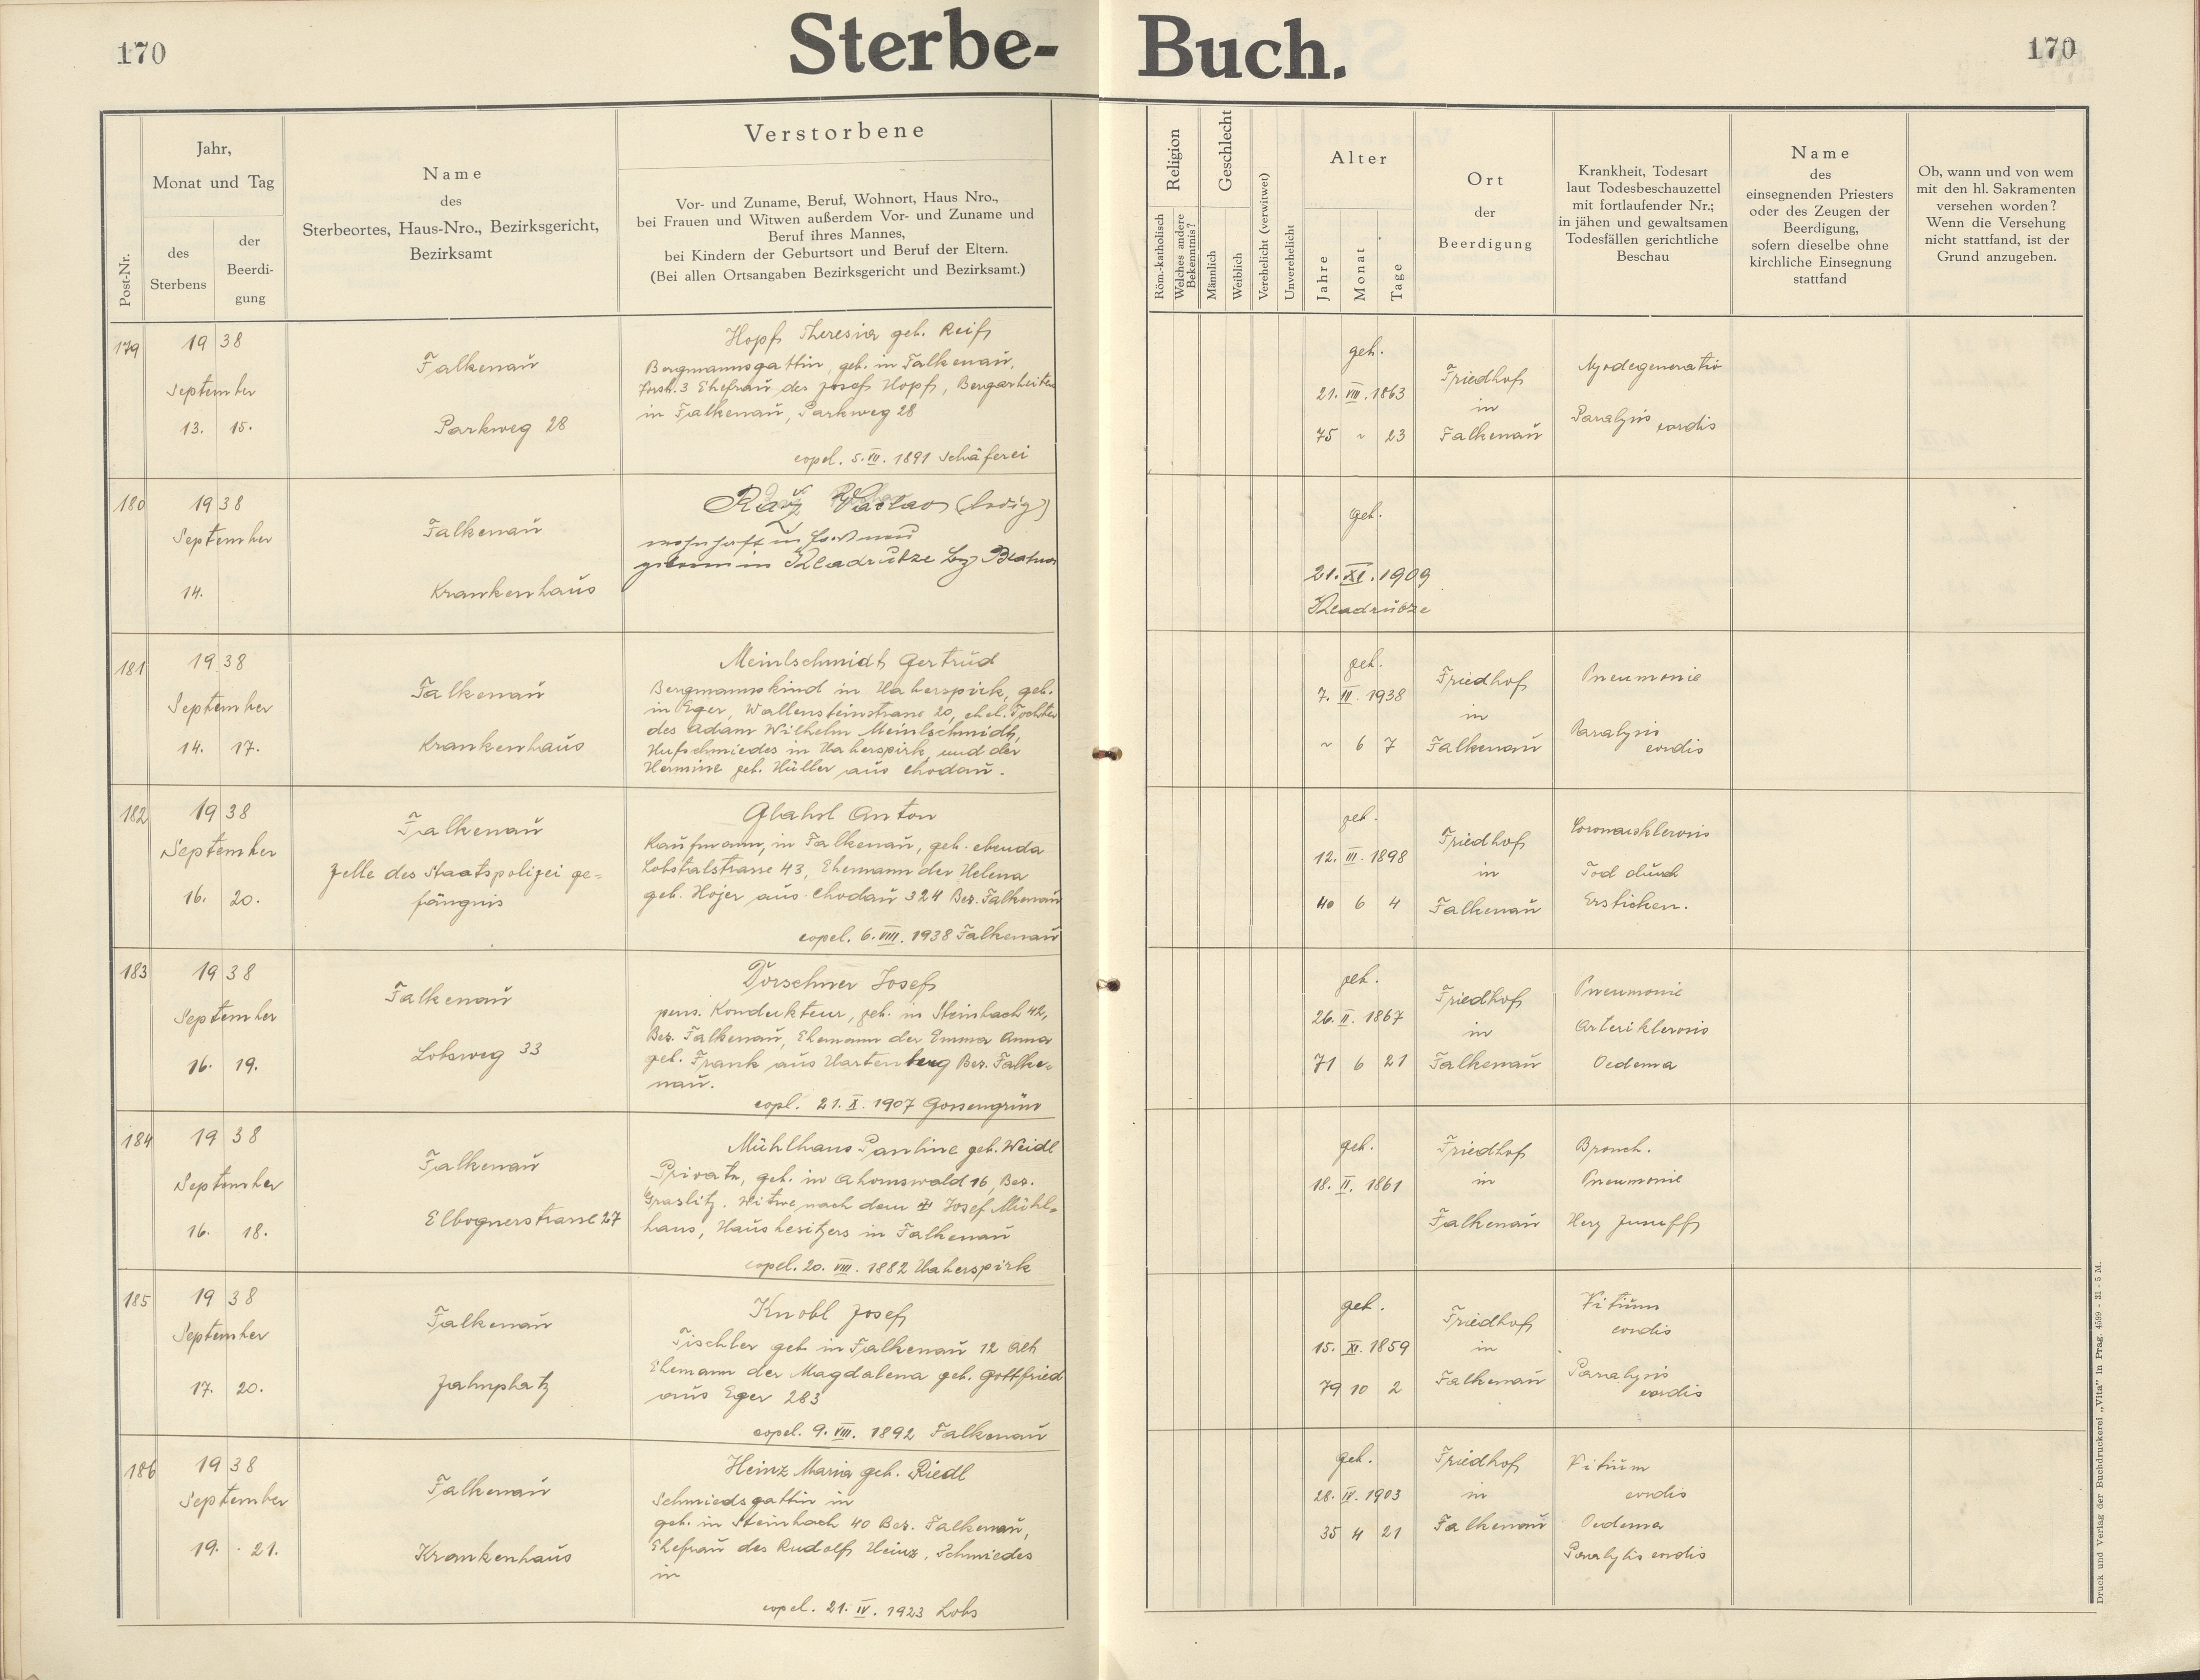 170
Sterbe-Buch.
170
Post-Nr.
Jahr,
Monat und Tag
des
Sterbens
der
Beerdi-
gung
Name
des
Sterbeortes, Haus-Nro., Bezirksgericht,
Bezirksamt
Verstorbene
Vor- und Zuname, Beruf, Wohnort, Haus Nro.,
bei Frauen und Witwen außerdem Vor- und Zuname und
Beruf ihres Mannes,
bei Kindern der Geburtsort und Beruf der Eltern.
(Bei allen Ortsangaben Bezirksgericht und Bezirksamt.)
Religion
Röm.-katholisch
Welches andere
Bekenntnis?
Geschlecht
Männlich
Weiblich
Verehelicht (verwitwet)
Unverehelicht
Alter
Jahre
Monat
Tage
Ort
der
Beerdigung
Krankheit, Todesart
laut Todesbeschauzettel
mit fortlaufender Nr.;
in jähen und gewaltsamen
Todesfällen gerichtliche
Beschau
Name
des
einsegnenden Priesters
oder des Zeugen der
Beerdigung,
sofern dieselbe ohne
kirchliche Einsegnung
stattfand
Ob, wann und von wem
mit den hl. Sakramenten
versehen worden?
Wenn die Versehung
nicht stattfand, ist der
Grund anzugeben.
179
1938
September
13. 15.
Falkenau
Parkweg 28
Hopf Theresia geb. Reif
Bergmannsgattin, geb. in Falkenau,
3 Ehefrau des Josef Hopf, Bergarbeiters
in Falkenau, Parkweg 28
copel. 5. VII. 1891 Schäferei
geb.
21. VIII. 1863
75 ~ 23
Friedhof
in
Falkenau
Myodegeneratio
Paralysis cordis
180
1938
September
14.
Falkenau
Krankenhaus
(ledig)
wohnhaft in
geboren in Kladrubze
geb.
21. XI. 1909
Kladrubze
181
1938
September
14. 17.
Falkenau
Krankenhaus
Meinlschmidt Gertrud
Bergmannskind in Haberspirk, geb.
in Eger, Wallensteinstrasse 20, ehel. Tochter
des Adam Wilhelm Meinlschmidt,
Hufschmiedes in Haberspirk und der
Hermine geb. Hüller aus Chodau.
geb.
7. III. 1938
~ 6 7
Friedhof
in
Falkenau
Pneumonie
Paralysis
cordis
182
1938
September
16. 20.
Falkenau
Zelle des Staatspolizei ge=
fängnis
Glahsl Anton
Kaufmann, in Falkenau, geb. ebenda
Lobstalstrasse 43, Ehemann der Helena
geb. Hojer aus Chodau 324 Bez. Falkenau
copel. 6. VIII. 1938 Falkenau
geb.
12. III. 1898
40 6 4
Friedhof
in
Falkenau
Coronarsklerosis
Tod durch
Ersticken.
183
1938
September
16. 19.
Falkenau
Lobsweg 33
Dörschner Josef
pens. Kondukteur, geb. in Steinbach 42,
Bez. Falkenau, Ehemann der Emma Anna
geb. Frank aus Hartenberg Bez. Falke=
nau.
copl. 21. X. 1907 Gossengrün
geb.
26. II. 1867
71 6 21
Friedhof
in
Falkenau
Pneumonie
Arteriklerosis
Oedema
184
1938
September
16. 18.
Falkenau
Elbognerstrasse 27
Mühlhans Pauline geb. Weidl
Private, geb. in Ahornswald 16, Bez.
Graslitz. Witwe nach dem Josef Mühl=
hans, Hausbesitzers in Falkenau
copel. 20. VIII. 1882 Haberspirk
geb.
18. II. 1861
Friedhof
in
Falkenau
Bronch.
Pneumonie
Herz Jnsuff
185
1938
September
17. 20.
Falkenau
Jahnplatz
Knobl Josef
Tischler geb in Falkenau 12 alt
Ehemann der Magdalena geb. Gottfried
aus Eger 283
copel. 9. VIII. 1892 Falkenau
geb.
15. XI. 1859
79 10 2
Friedhof
in
Falkenau
Vitium
cordis
Paralysis
cordis
186
1938
September
19. 21.
Falkenau
Krankenhaus
Heinz Maria geb. Riedl
Schmiedsgattin in
geb. in Steinbach 40 Bez. Falkenau,
Ehefrau des Rudolf Heinz, Schmiedes
in
copel. 21. IV. 1923 Lobs
geb.
28. IV. 1903
35 4 21
Friedhof
in
Falkenau
Vitium
cordis
Oedema
Paralysis cordis
Druck und Verlag der Buchdruckerei „Vita" in Prag. 4599 - 31 - 5 M.